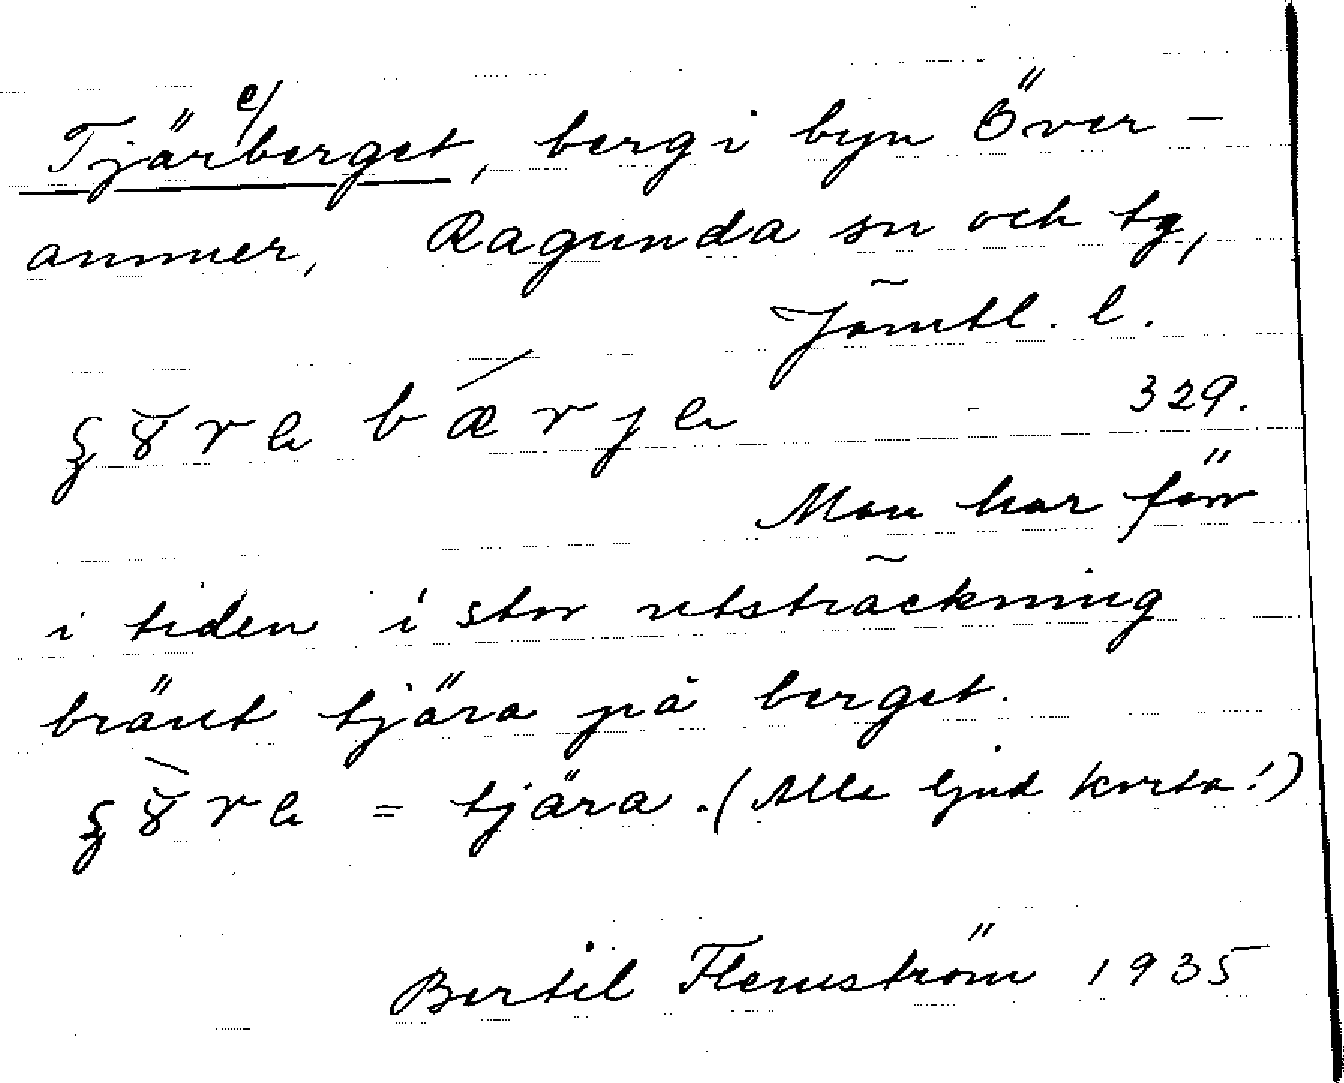 Tjär e/ berget, berg i byn Över-
ammer, Ragunda sn och tg,
Jämtl. l.
329.
Man har förr
i tiden i stor utsträckning
bränt tjära på berget.
= tjära. (Alla ljud korta!)
Bertil Flemström 1935